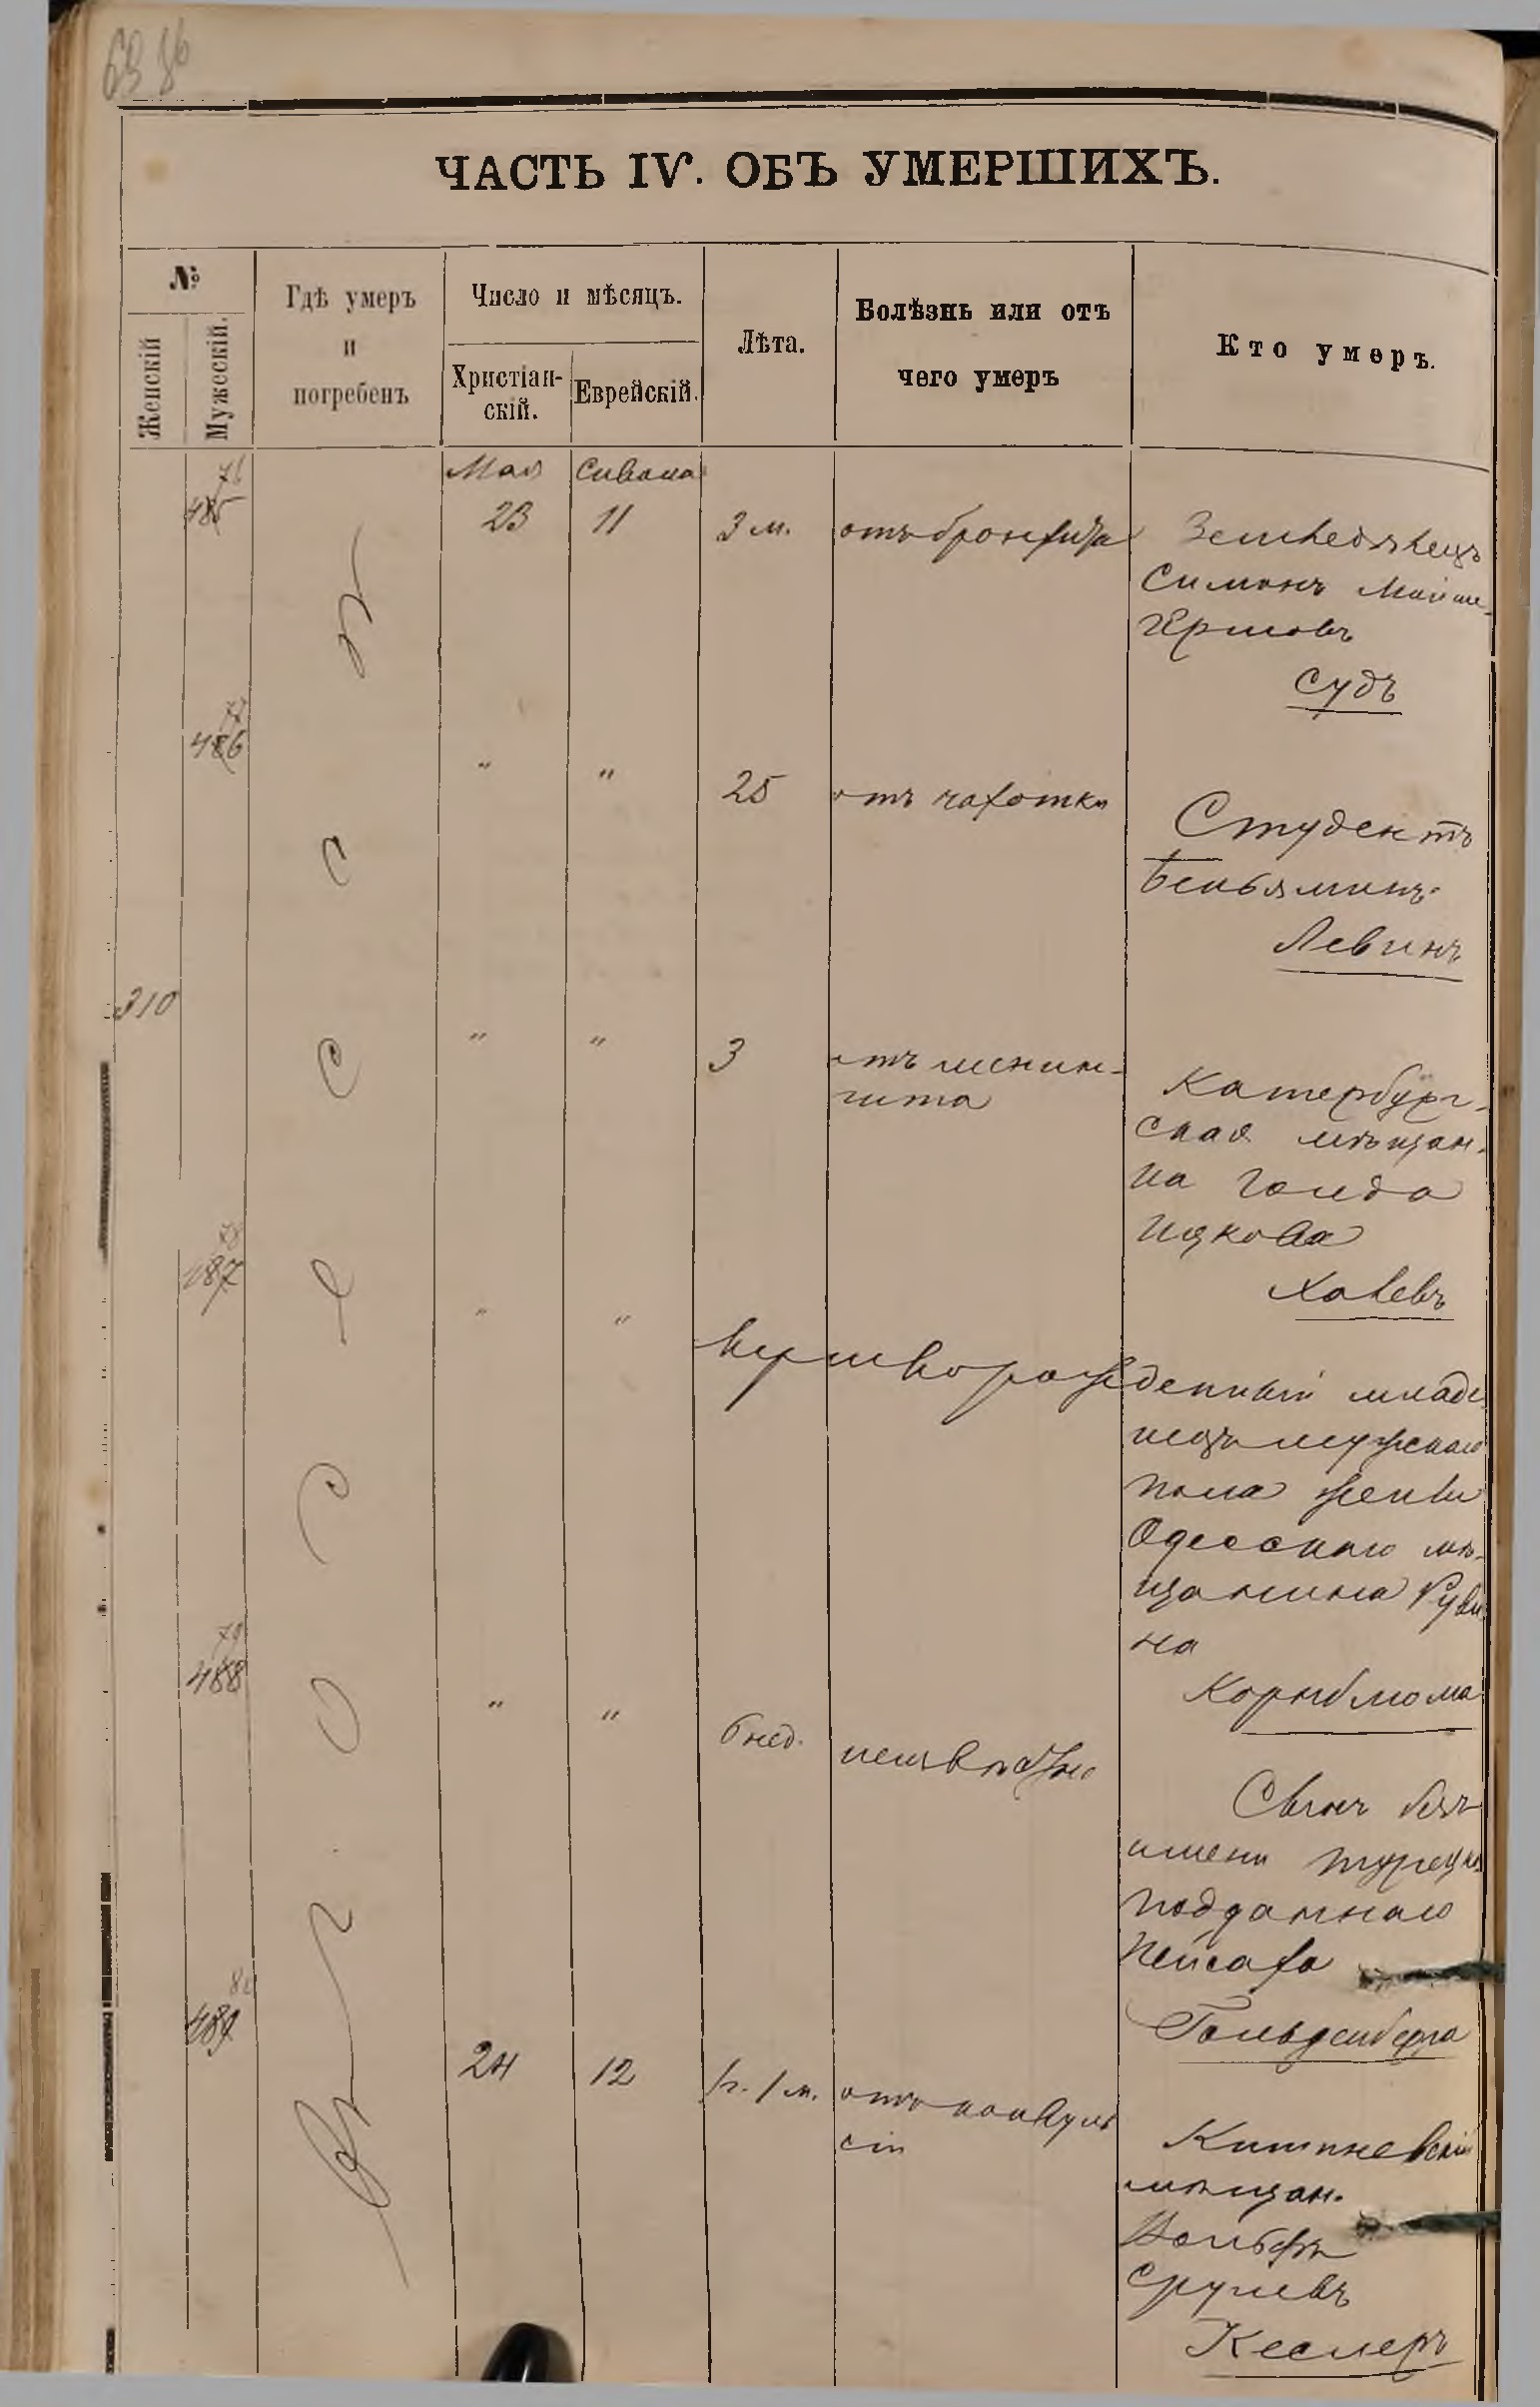 68 86
ЧАСТЬ IV. ОБЪ УМЕРШИХЪ.
№
Женскій
Мужескій.
Гдѣ умеръ
и
погребенъ
Число и мѣсяцъ.
Христіан-
скій.
Еврейскій.
Лѣта.
Болѣзнь или отъ
чего умеръ
Кто умеръ.
Въ Одессѣ
76
485
Мая
23
Сивана
11
3 м.
отъ бронхита
Земледѣлецъ
Симонъ Мойше-
Гершовъ
Судъ
77
486
"
"
25
отъ чахотки
Студентъ
Беньяминъ
Левинъ
310
"
"
3
отъ менин-
гита
Катербург-
ская мѣщан-
ка Голда
Ицкова
Халевъ
78
487
"
"
мертворожденный младе-
нецъ мужскаго
пола жены
Одесскаго мѣ-
щанина Руви
на
Корнблюма
79
488
"
"
6 нед.
неизвѣстно
Сынъ безъ
имени турецк.
подданнаго
Пейсаха
Гольденберга
80
489
24
12
1 г. 1 м.
отъ конвуль
сіи
Кишиневскій
мѣщан.
Вольфъ
Срулевъ
Кеслеръ